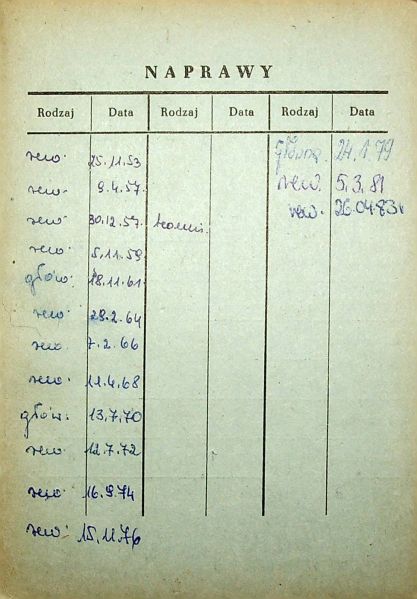 NAPRAWY
Rodzaj Data Rodzaj Data Rodzaj Data
rew. 25.11.53 główna. 24.1.79
rew. 9.4.57. rew. 5.3.81
rew. 30.12.57. rew. 26.04.83r
rew. 5.11.59
głów. 18.11.61
rew. 29.2.64
rew. 7.2.66
rew. 11.4.68
głów. 13.7.70
rew. 12.7.72
rew. 16.9.74
rew. 15.11.76